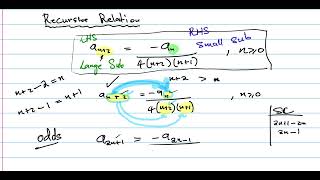 Recursive Relation
LHS RHS
a_{n+2} = -a_n / 4(n+2)(n+1) , n≥0
Large Sub Small Sub
n+2 > n
n+2-2=n
n+2-1=n+1
a_{n+2} = -a_n / 4(n+2)(n+1) , n≥0
SC
odds a_{2n+1} = -a_{2n-1}
2n-1